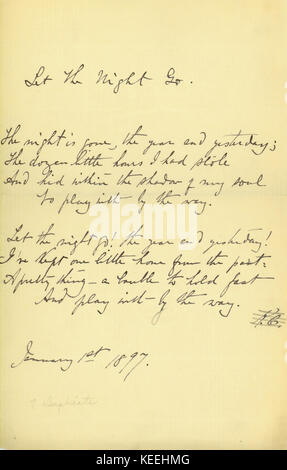 Let The Night Go.
The night is gone, the year and yesterday;
The dozen little hours I had stole
And hid within the shadow of my soul
To play with by the way.
Let the night go! the year and yesterday!
I've kept one little hour from the past.
A pretty thing - a bauble to hold fast
And play with by the way.
K.C.
January 1st 1897.
? Duplicate
alamy
alamy
Image ID: KEEHMG
www.alamy.com